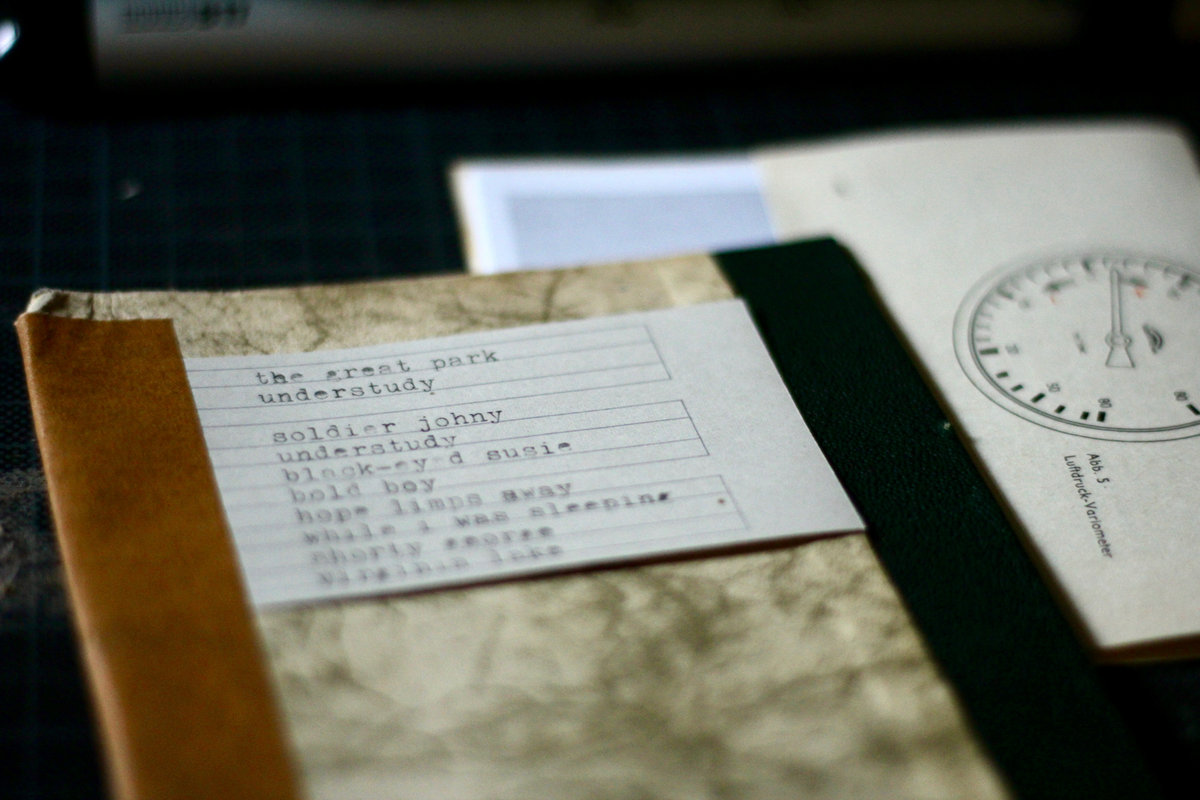 the great park
understudy
soldier johny
understudy
black-eyed susie
bold boy
hope limps away
while i was sleeping
shorty george
virginia lake
Abb. 5
Luftdruck-Variometer